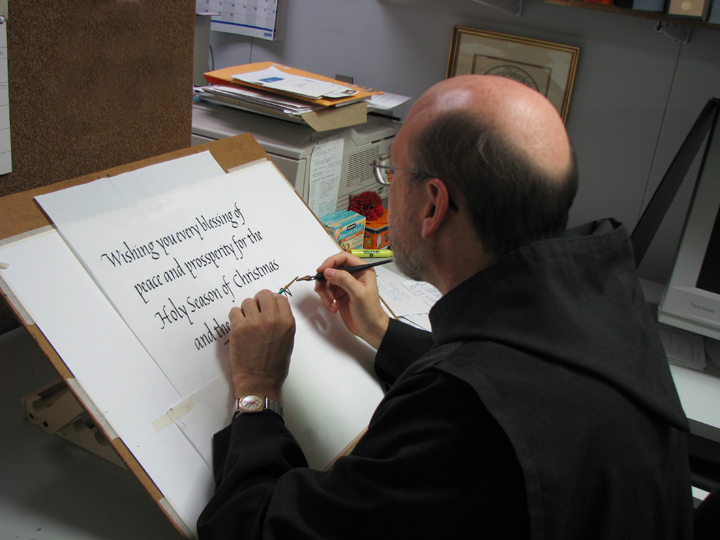 Wishing you every blessing of
peace and prosperity for the
Holy Season of Christmas
and the